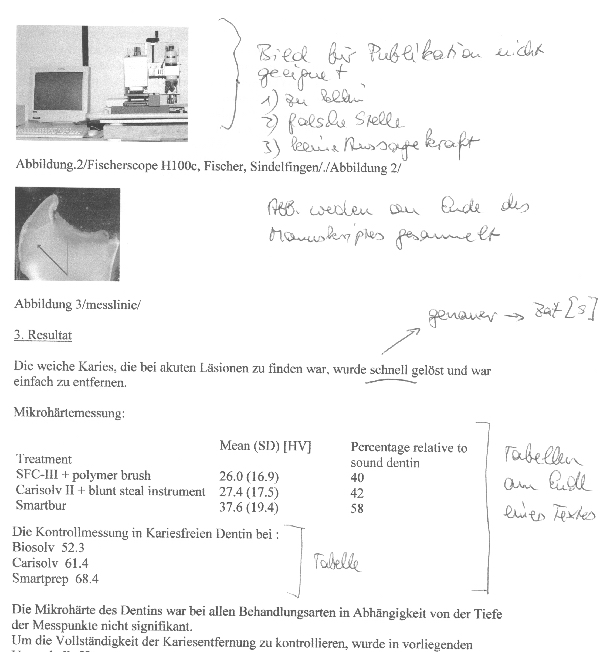 Bild für Publikation nicht
geeignet
1) zu klein
2) falsche Stelle
3) keine Aussagekraft
Abbildung.2/Fischerscope H100c, Fischer, Sindelfingen/./Abbildung 2/
Abb. werden am Ende des
Manuskriptes gesammelt
Abbildung 3/messlinie/
genauer → Zeit [s]
3. Resultat
Die weiche Karies, die bei akuten Läsionen zu finden war, wurde schnell gelöst und war
einfach zu entfernen.
Mikrohärtemessung:
Treatment Mean (SD) [HV] Percentage relative to
sound dentin
SFC-III + polymer brush 26.0 (16.9) 40
Carisolv II + blunt steal instrument 27.4 (17.5) 42
Smartbur 37.6 (19.4) 58
Tabellen
am Ende
eines Textes
Die Kontrollmessung in Kariesfreien Dentin bei :
Biosolv 52.3
Carisolv 61.4
Smartprep 68.4
Tabelle
Die Mikrohärte des Dentins war bei allen Behandlungsarten in Abhängigkeit von der Tiefe
der Messpunkte nicht signifikant.
Um die Vollständigkeit der Kariesentfernung zu kontrollieren, wurde in vorliegenden